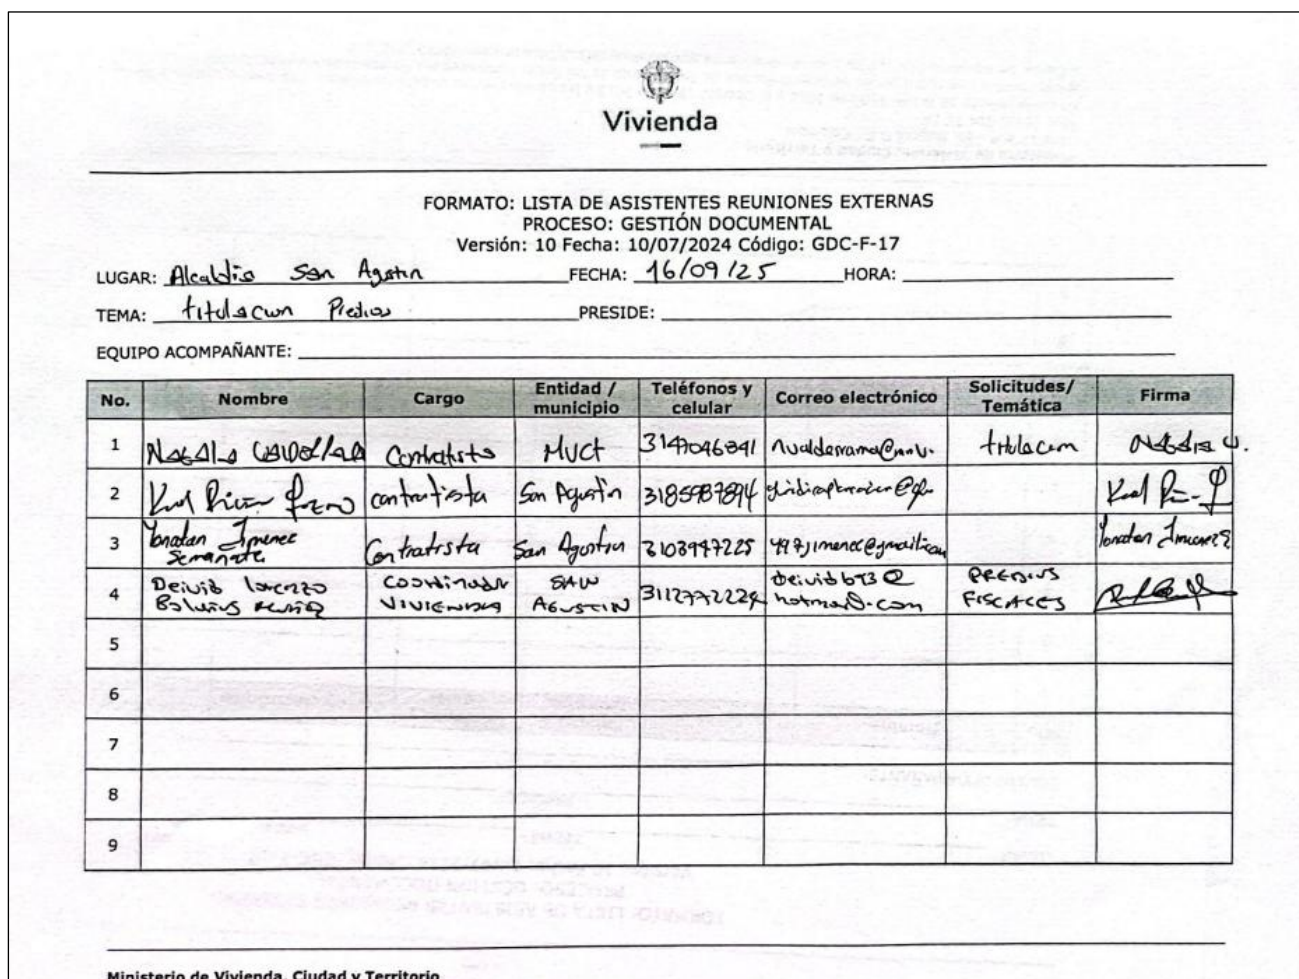 Vivienda
FORMATO: LISTA DE ASISTENTES REUNIONES EXTERNAS
PROCESO: GESTIÓN DOCUMENTAL
Versión: 10 Fecha: 10/07/2024 Código: GDC-F-17
LUGAR: Alcaldia San Agustin FECHA: 16/09/25 HORA:
TEMA: titulacion Predios PRESIDE:
EQUIPO ACOMPAÑANTE:
No. Nombre Cargo Entidad / municipio Teléfonos y celular Correo electrónico Solicitudes/ Temática Firma
1 Natalia Contratista MVCT 3147046841 titulacion Natalia
2 contratista San Agustin
3 Yonatan Jimenez Contratista San Agustin 3103997225 Yonatan Jimenez
4 Deivid Lorenzo Coordinador SAN PREDIOS
VIVIENDA AGUSTIN 3112772224 hotmail.com FISCALES
5
6
7
8
9
Ministerio de Vivienda, Ciudad y Territorio